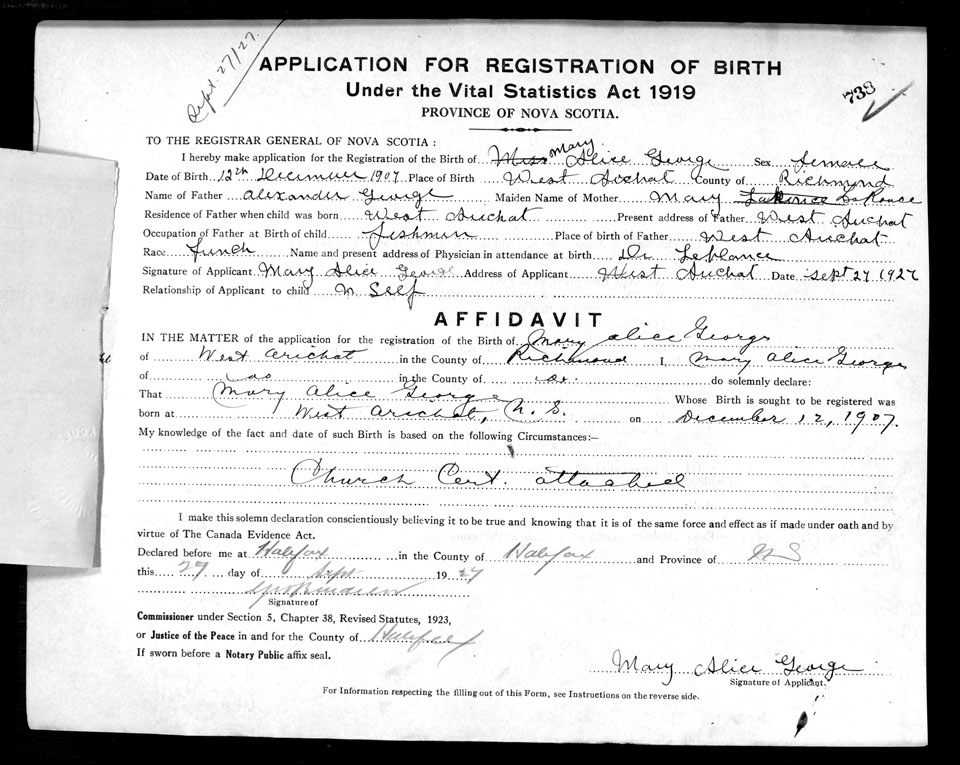 Sept. 27/27.
APPLICATION FOR REGISTRATION OF BIRTH
Under the Vital Statistics Act 1919
738
PROVINCE OF NOVA SCOTIA.
TO THE REGISTRAR GENERAL OF NOVA SCOTIA :
I hereby make application for the Registration of the Birth of Miss Mary Alice George Sex female
Date of Birth 12th December 1907 Place of Birth West Arichat County of Richmond
Name of Father Alexander George Maiden Name of Mother Mary DeRonce
Residence of Father when child was born West Arichat Present address of Father West Arichat
Occupation of Father at Birth of child fishman Place of birth of Father West Arichat
Race french Name and present address of Physician in attendance at birth Dr LeBlance
Signature of Applicant Mary Alice George Address of Applicant West Arichat Date Sept 27 1927
Relationship of Applicant to child Self
AFFIDAVIT
IN THE MATTER of the application for the registration of the Birth of Mary Alice George
of West Arichat in the County of Richmond I, Mary Alice George
of do in the County of do. do solemnly declare:
That Mary Alice George Whose Birth is sought to be registered was
born at West Arichat, N. S. on December 12, 1907.
My knowledge of the fact and date of such Birth is based on the following Circumstances:—
Church Cert. attached
I make this solemn declaration conscientiously believing it to be true and knowing that it is of the same force and effect as if made under oath and by
virtue of The Canada Evidence Act.
Declared before me at Halifax in the County of Halifax and Province of NS
this 27 day of Sept 1927
Signature of
Commissioner under Section 5, Chapter 38, Revised Statutes, 1923,
or Justice of the Peace in and for the County of Halifax
If sworn before a Notary Public affix seal.
Mary Alice George
Signature of Applicant.
For Information respecting the filling out of this Form, see Instructions on the reverse side.